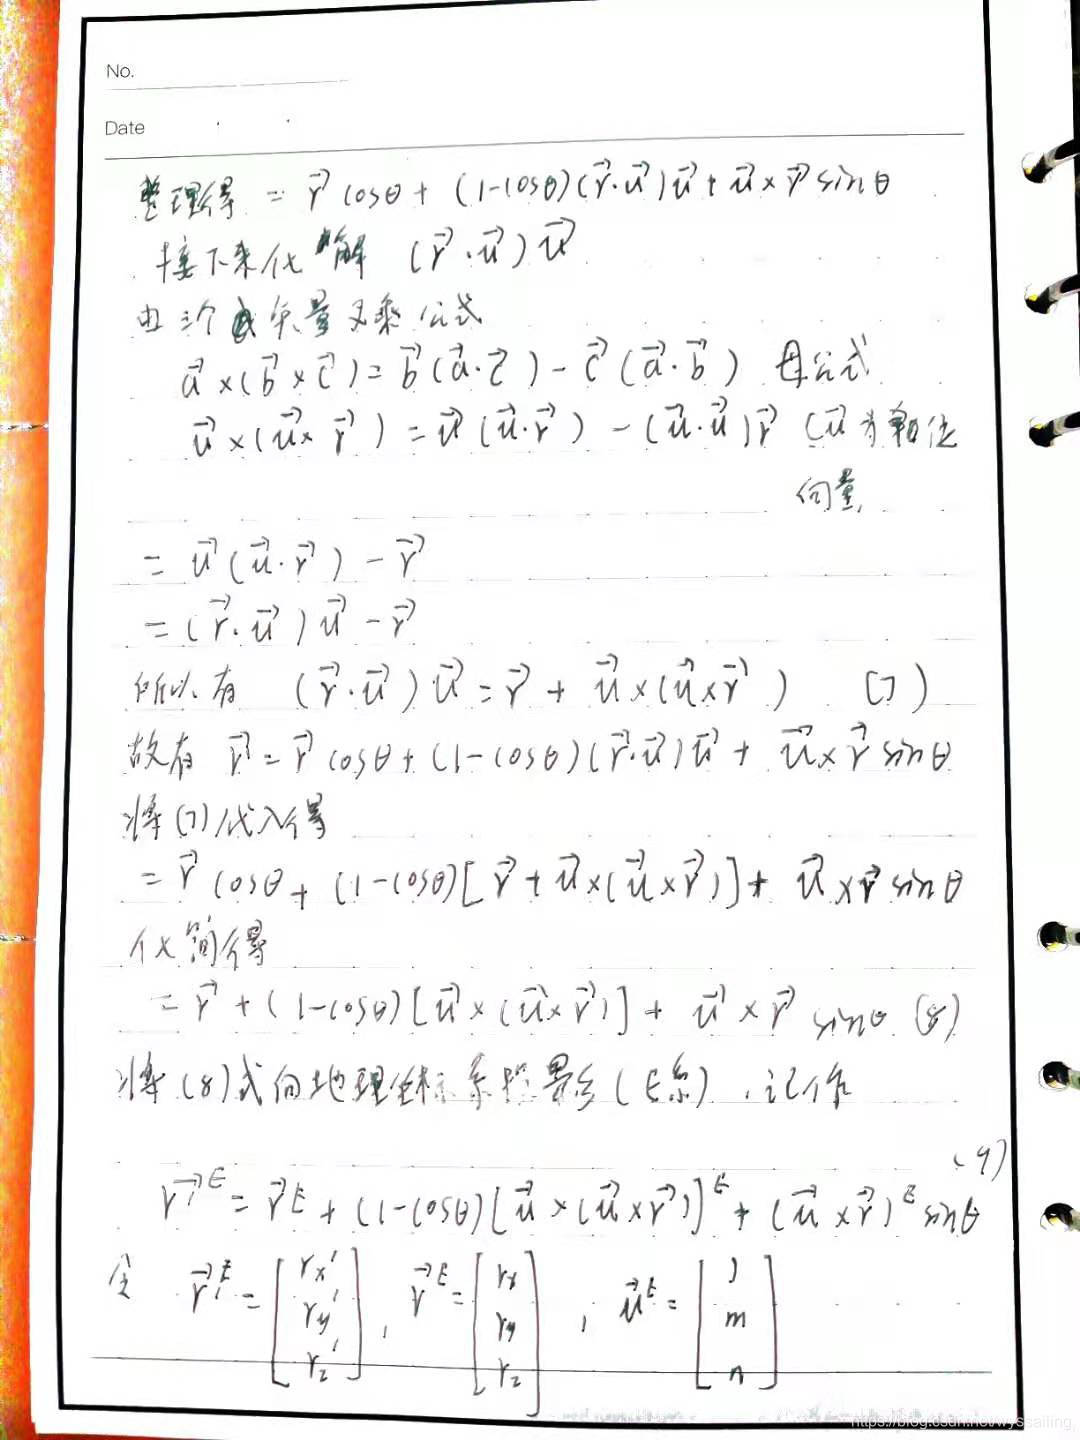 No.
Date
整理得 = r⃗ cosθ + (1-cosθ)(r⃗·u⃗)u⃗ + u⃗×r⃗ sinθ
接下来化解 (r⃗·u⃗)u⃗
由三个矢量叉乘公式
a⃗×(b⃗×c⃗) = b⃗(a⃗·c⃗) - c⃗(a⃗·b⃗) 母公式
u⃗×(u⃗×r⃗) = u⃗(u⃗·r⃗) - (u⃗·u⃗)r⃗ (u⃗为单位
向量
= u⃗(u⃗·r⃗) - r⃗
= (r⃗·u⃗)u⃗ - r⃗
所以有 (r⃗·u⃗)u⃗ = r⃗ + u⃗×(u⃗×r⃗) (7)
故有 r⃗' = r⃗ cosθ + (1-cosθ)(r⃗·u⃗)u⃗ + u⃗×r⃗ sinθ
将(7)代入得
= r⃗ cosθ + (1-cosθ)[r⃗ + u⃗×(u⃗×r⃗)] + u⃗×r⃗ sinθ
化简得
= r⃗ + (1-cosθ)[u⃗×(u⃗×r⃗)] + u⃗×r⃗ sinθ (8)
将(8)式向地理坐标系投影(E系),记作
(9)
r⃗'^E = r⃗^E + (1-cosθ)[u⃗×(u⃗×r⃗)]^E + (u⃗×r⃗)^E sinθ
令 r⃗'^E = [rx' ry' rz'], r⃗^E = [rx ry rz], u⃗^E = [l m n]
https://blog.csdn.net/wyssailing